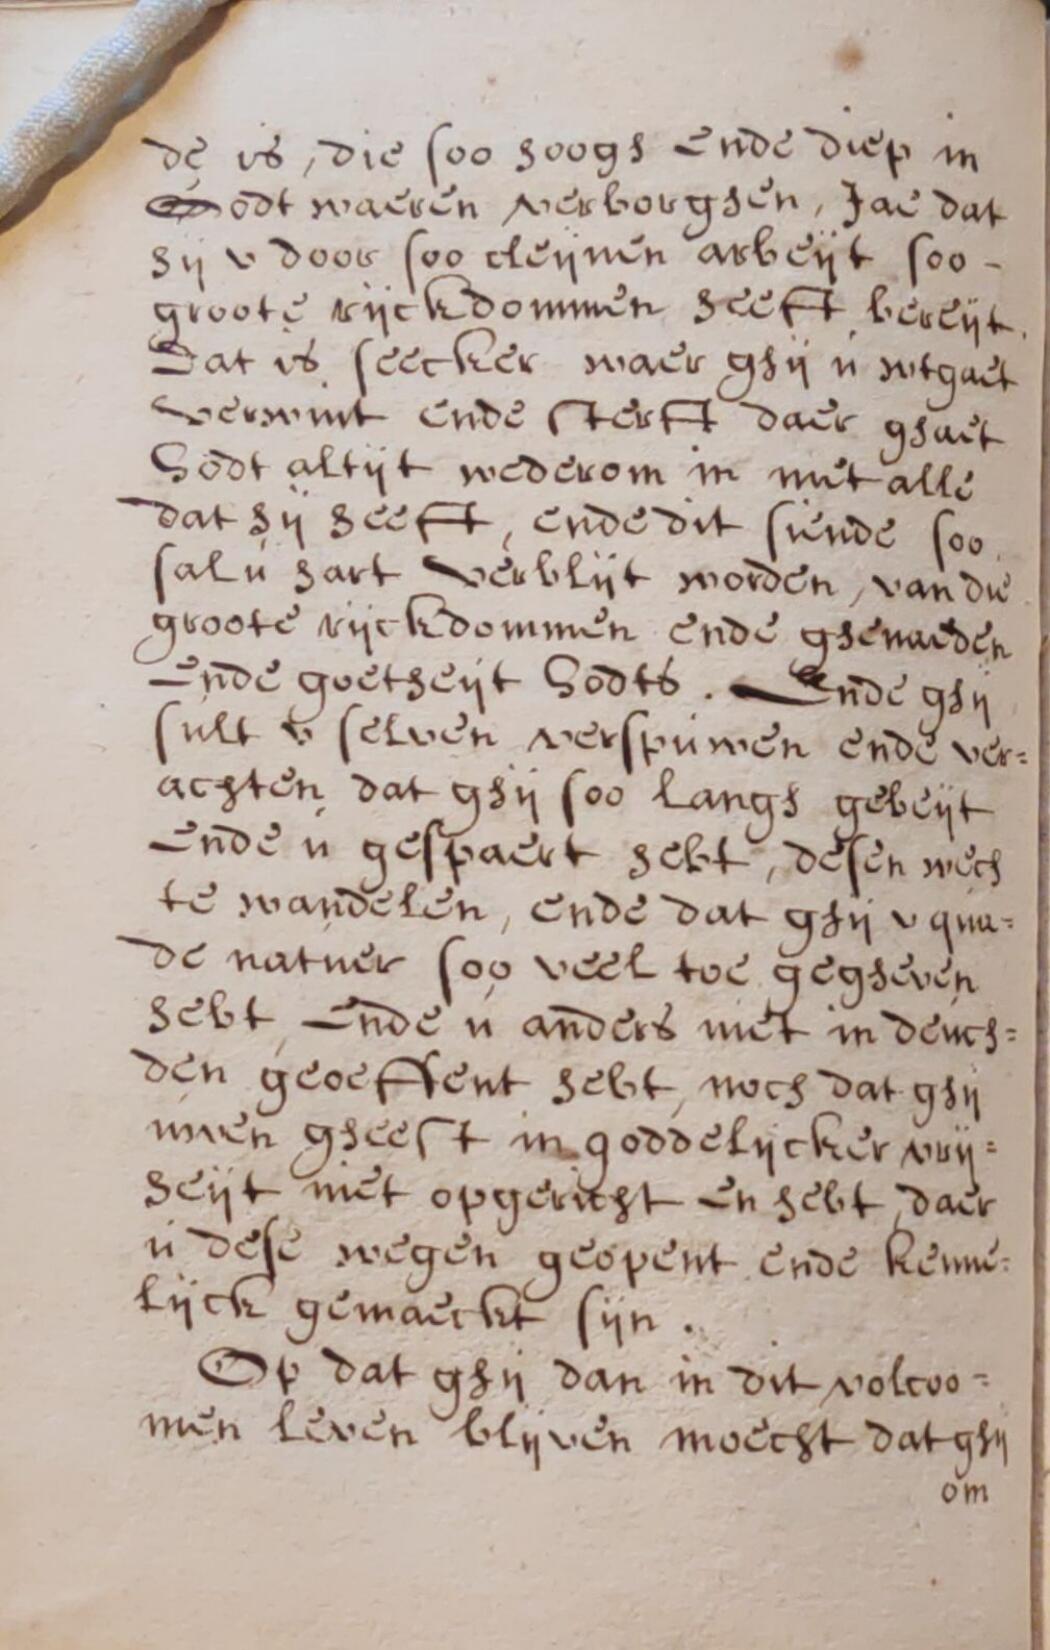 de is, die soo hoogh Ende diep in
Godt waeren verborghen, Jae dat
hij v door soo cleijnen arbeijt soo -
groote rijckdommen heeft bereijt.
Dat is seecker waer ghij ú wtgaet
verwint ende sterft daer ghaet
Godt altijt wederom in met alle
dat hij heeft, ende dit siende soo
sal ú hart verblijt worden, van die
groote rijckdommen ende ghenaeden
Ende goetheijt Godts. Ende ghij
sult v selven verspúwen ende ver=
achten dat ghij soo langh gebeijt
Ende ú gespaert hebt, desen wech
te wandelen, ende dat ghij v qua=
de natuer soo veel toe gegheven
hebt, Ende ú anders niet in deuch=
den geoeffent hebt, noch dat ghij
uwen gheest in goddelijcker vrij=
heijt niet opgericht En hebt, daer
ú dese wegen geopent ende kenne=
lijck gemaeckt sijn.
Op dat ghij dan in dit volcoo=
men leven blijven moecht dat ghij
om